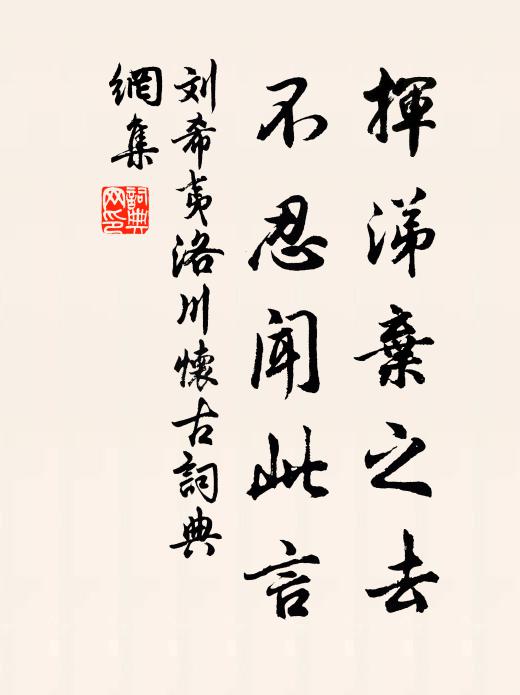 揮涕棄之去
不忍聞此言
刘希夷洛川懷古詞典
網集
詞典
网印